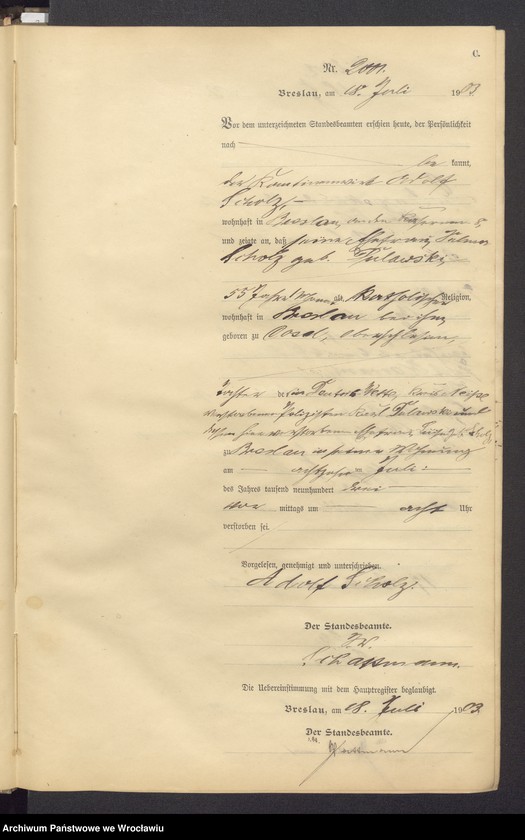 C.
Nr. 2001.
Breslau, am 18. Juli 1903
Vor dem unterzeichneten Standesbeamten erschien heute, der Persönlichkeit
nach
be kannt,
der Kantinenwirt Adolf
Scholz,
wohnhaft in Breslau, an den Kasernen
und zeigte an, daß seine Ehefrau
Scholz geb. Pulawski,
55 Jahre alt, katholischer Religion,
wohnhaft in Breslau bei ihm,
geboren zu Cosel, Oberschlesien,
Tochter des in
verstorbenen Polizisten Karl und
verstorbenen Ehefrau
zu Breslau in seiner Wohnung
am achtzehnten Juli
des Jahres tausend neunhundert drei
vor mittags um acht Uhr
verstorben sei.
Vorgelesen, genehmigt und unterschrieben.
Adolf Scholz.
Der Standesbeamte.
Die Uebereinstimmung mit dem Hauptregister beglaubigt.
Breslau, am 18. Juli 1903
Der Standesbeamte.
Archiwum Państwowe we Wrocławiu